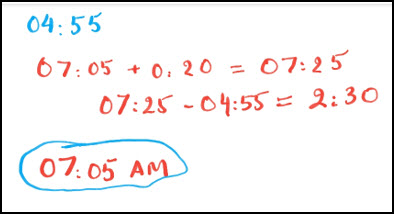 04:55
07:05 + 0:20 = 07:25
07:25 - 04:55 = 2:30
07:05 AM